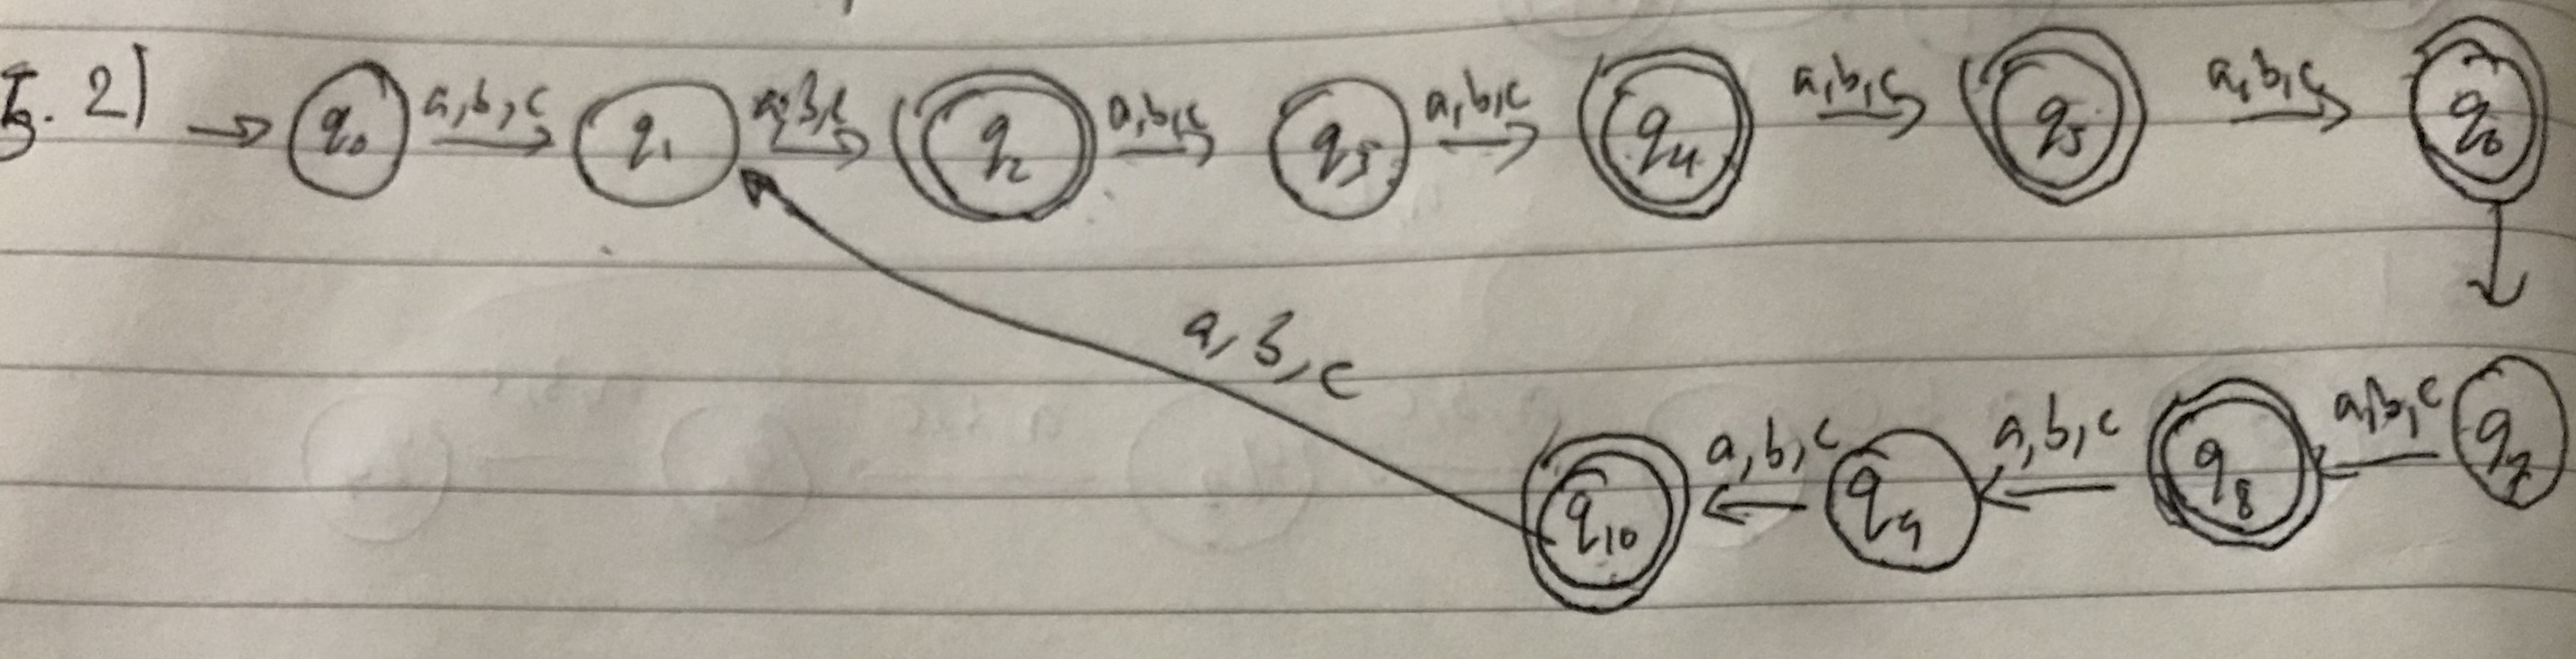 5. 2) → q0 a,b,c q1 a,b,c q2 a,b,c q3 a,b,c q4 a,b,c q5 a,b,c q6
a,b,c
q10 a,b,c q9 a,b,c q8 a,b,c q7